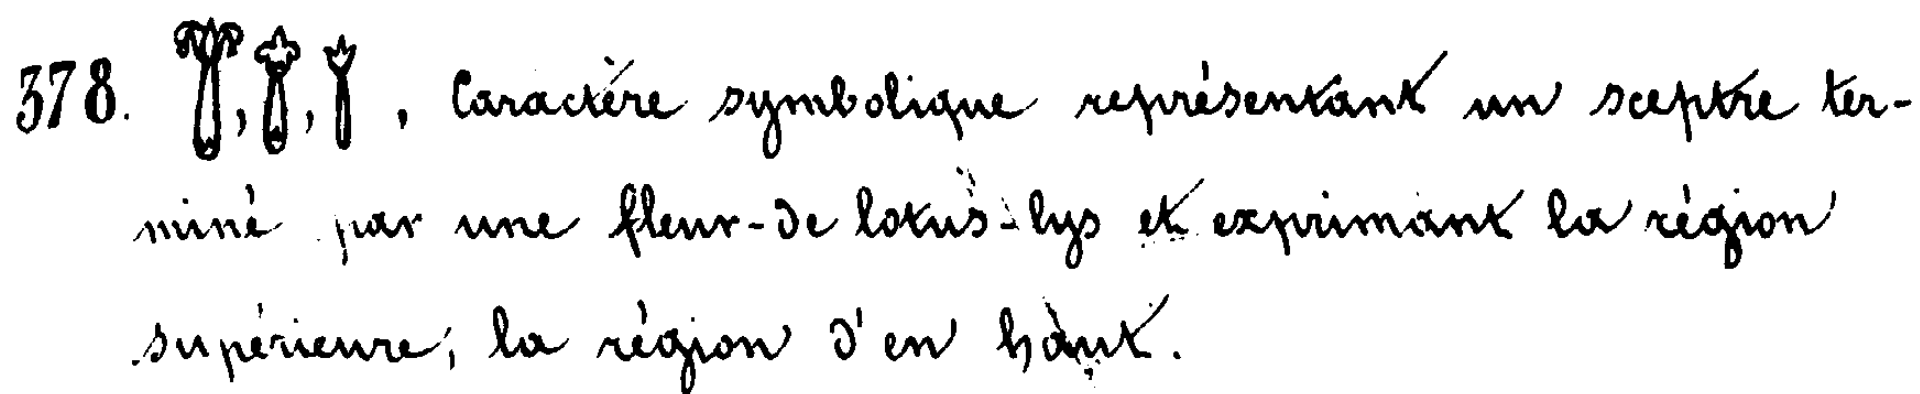 378. , , , Caractère symbolique représentant un sceptre ter-
miné par une fleur-de lotus-lys et exprimant la région
supérieure, la région d'en haut.